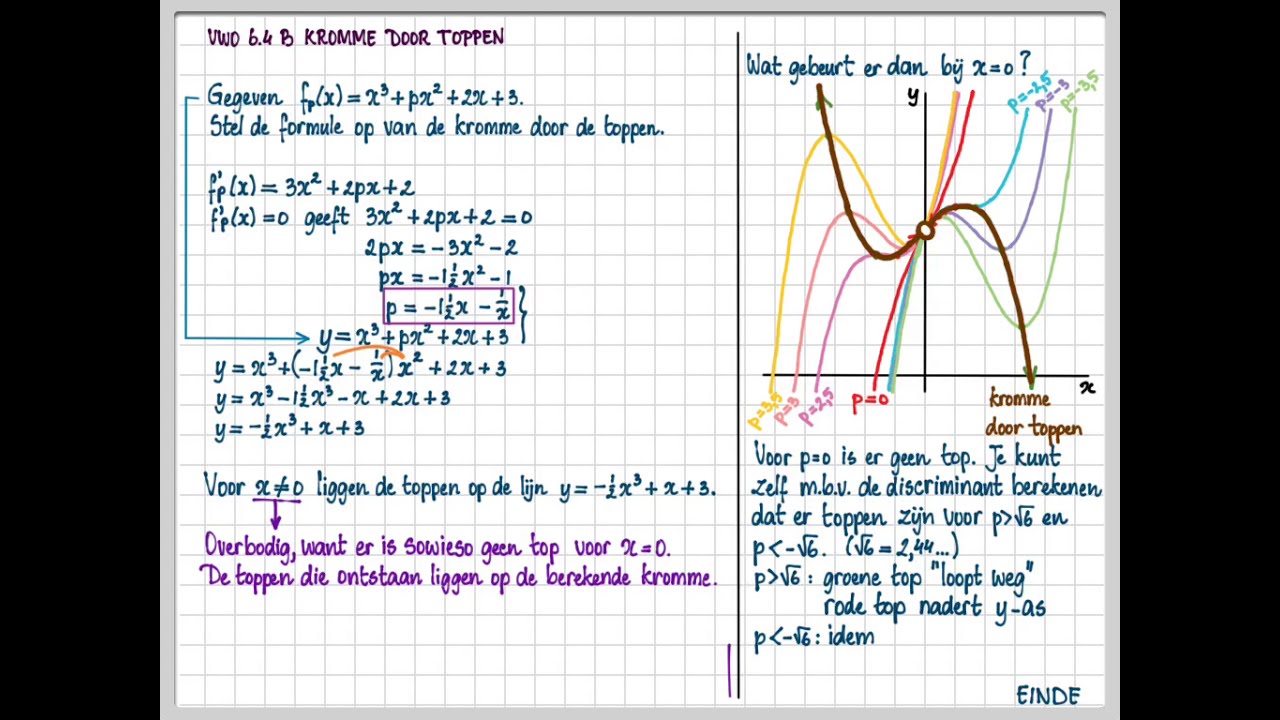 VWO 6.4 B KROMME DOOR TOPPEN
Gegeven fp(x) = x³ + px² + 2x + 3.
Stel de formule op van de kromme door de toppen.
f'p(x) = 3x² + 2px + 2
f'p(x) = 0 geeft 3x² + 2px + 2 = 0
2px = -3x² - 2
px = -1½x² - 1
p = -1½x - 1/x
y = x³ + px² + 2x + 3
y = x³ + (-1½x - 1/x)x² + 2x + 3
y = x³ - 1½x³ - x + 2x + 3
y = -½x³ + x + 3
Voor x ≠ 0 liggen de toppen op de lijn y = -½x³ + x + 3.
Overbodig, want er is sowieso geen top voor x = 0.
De toppen die ontstaan liggen op de berekende kromme.
Wat gebeurt er dan bij x = 0?
y
p=-2,5
p=-3
p=-3,5
x
p=3,5
p=3
p=2,5
p=0
kromme
door toppen
Voor p=0 is er geen top. Je kunt
zelf m.b.v. de discriminant berekenen
dat er toppen zijn voor p>√6 en
p<-√6. (√6 = 2,44...)
p>√6: groene top "loopt weg"
rode top nadert y-as
p<-√6: idem
EINDE